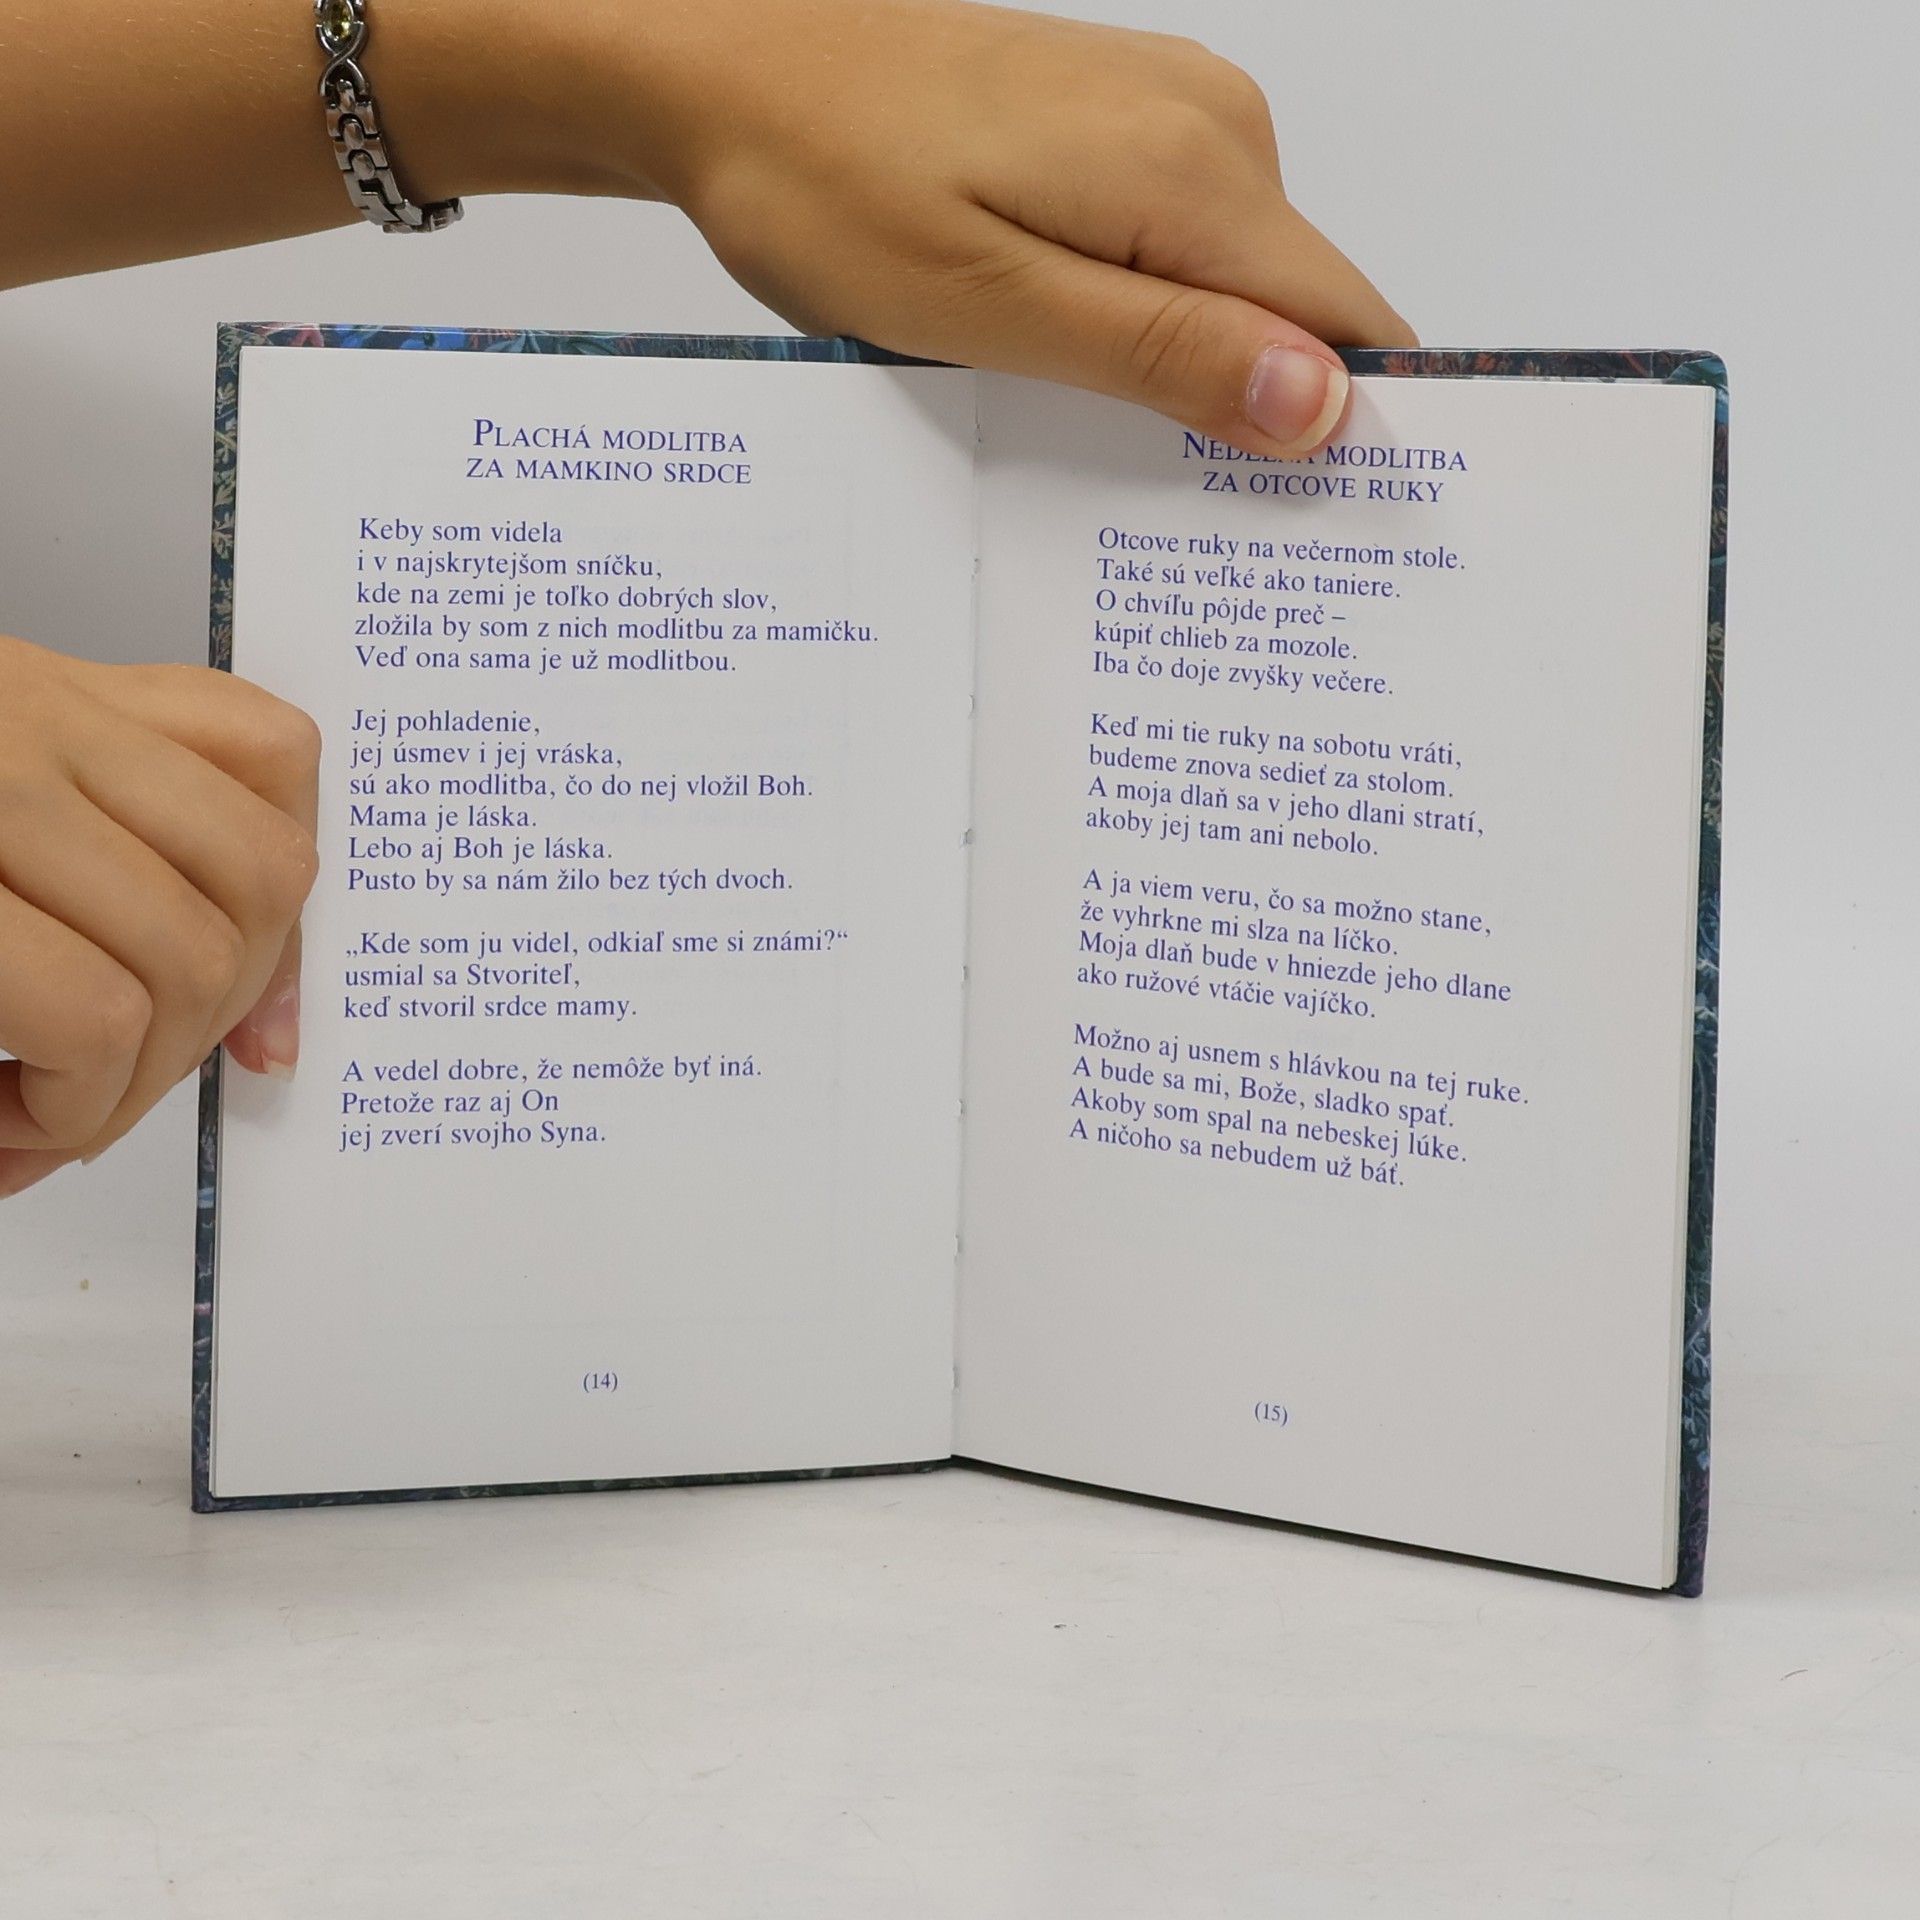 PLACHÁ MODLITBA
ZA MAMKINO SRDCE
Keby som videla
i v najskrytejšom sníčku,
kde na zemi je toľko dobrých slov,
zložila by som z nich modlitbu za mamičku.
Veď ona sama je už modlitbou.
Jej pohladenie,
jej úsmev i jej vráska,
sú ako modlitba, čo do nej vložil Boh.
Mama je láska.
Lebo aj Boh je láska.
Pusto by sa nám žilo bez tých dvoch.
„Kde som ju videl, odkiaľ sme si známi?“
usmial sa Stvoriteľ,
keď stvoril srdce mamy.
A vedel dobre, že nemôže byť iná.
Pretože raz aj On
jej zverí svojho Syna.
(14)
MODLITBA
ZA OTCOVE RUKY
Otcove ruky na večernom stole.
Také sú veľké ako taniere.
O chvíľu pôjde preč –
kúpiť chlieb za mozole.
Iba čo doje zvyšky večere.
Keď mi tie ruky na sobotu vráti,
budeme znova sedieť za stolom.
A moja dlaň sa v jeho dlani stratí,
akoby jej tam ani nebolo.
A ja viem veru, čo sa možno stane,
že vyhrkne mi slza na líčko.
Moja dlaň bude v hniezde jeho dlane
ako ružové vtáčie vajíčko.
Možno aj usnem s hlávkou na tej ruke.
A bude sa mi, Bože, sladko spať.
Akoby som spal na nebeskej lúke.
A ničoho sa nebudem už báť.
(15)